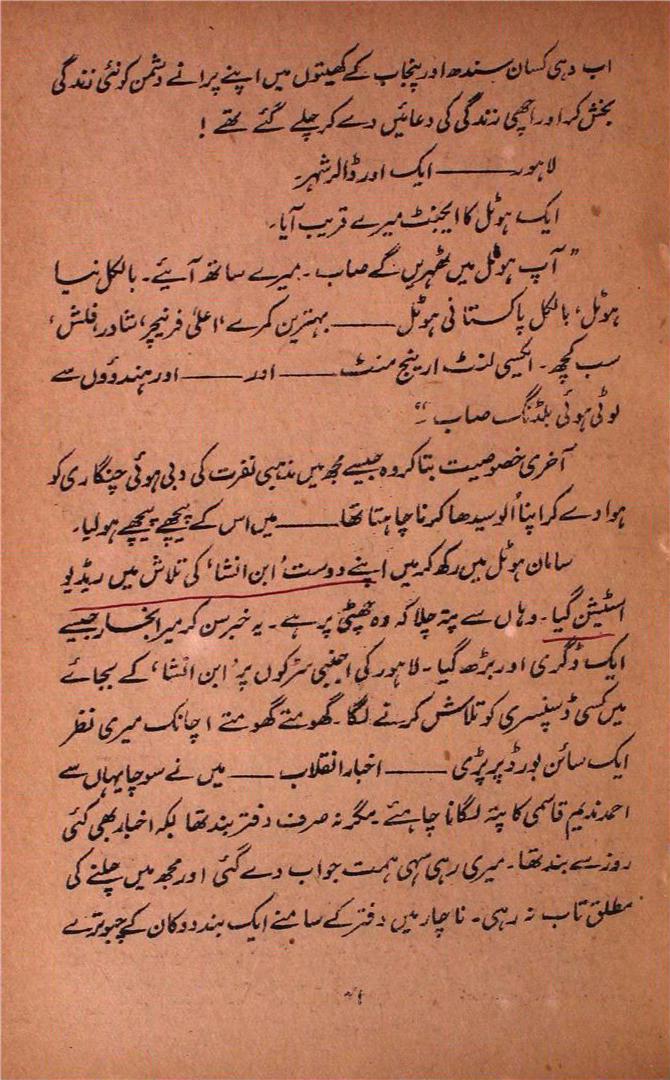 اب وہی کسان سندھ اور پنجاب کے کھیتوں میں اپنے پرانے دشمن کو نئی زندگی
بخش کر اور اچھی زندگی کی دعائیں دے کر چلے گئے تھے !
لاہور ——— ایک اور ڈالر شہر۔
ایک ہوٹل کا ایجنٹ میرے قریب آیا۔
”آپ ہوٹل میں ٹھہریں گے صاب۔ میرے ساتھ آیئے۔ بالکل نیا
ہوٹل، بالکل پاکستانی ہوٹل ——— بہترین کمرے، اعلیٰ فرنیچر، شاور، فلش،
سب کچھ۔ ایکسی لنٹ ارینج منٹ ——— اور ——— اور ہندوؤں سے
لوٹی ہوئی بلڈنگ صاب ۔“
آخری خصوصیت بتا کر وہ جیسے مجھ میں مذہبی نفرت کی دبی ہوئی چنگاری کو
ہوا دے کر اپنا اُلو سیدھا کرنا چاہتا تھا ——— میں اس کے پیچھے پیچھے ہو لیا۔
سامان ہوٹل میں رکھ کر میں اپنے دوست ’ابن انشا‘ کی تلاش میں ریڈیو
اسٹیشن گیا۔ وہاں سے پتہ چلا کہ وہ چھٹی پر ہے۔ یہ خبر سن کر میرا بخار جیسے
ایک ڈگری اور بڑھ گیا۔ لاہور کی اجنبی سڑکوں پر ’ابن انشا‘ کے بجائے
میں کسی ڈسپنسری کو تلاش کرنے لگا۔ گھومتے گھومتے اچانک میری نظر
ایک سائن بورڈ پر پڑی ——— اخبار انقلاب ——— میں نے سوچا یہاں سے
احمد ندیم قاسمی کا پتہ لگانا چاہئے۔ مگر نہ صرف دفتر بند تھا بلکہ اخبار بھی کئی
روز سے بند تھا۔ میری رہی سہی ہمت جواب دے گئی اور مجھ میں چلنے کی
مطلق تاب نہ رہی۔ ناچار میں دفتر کے سامنے ایک بند دوکان کے چبوترے